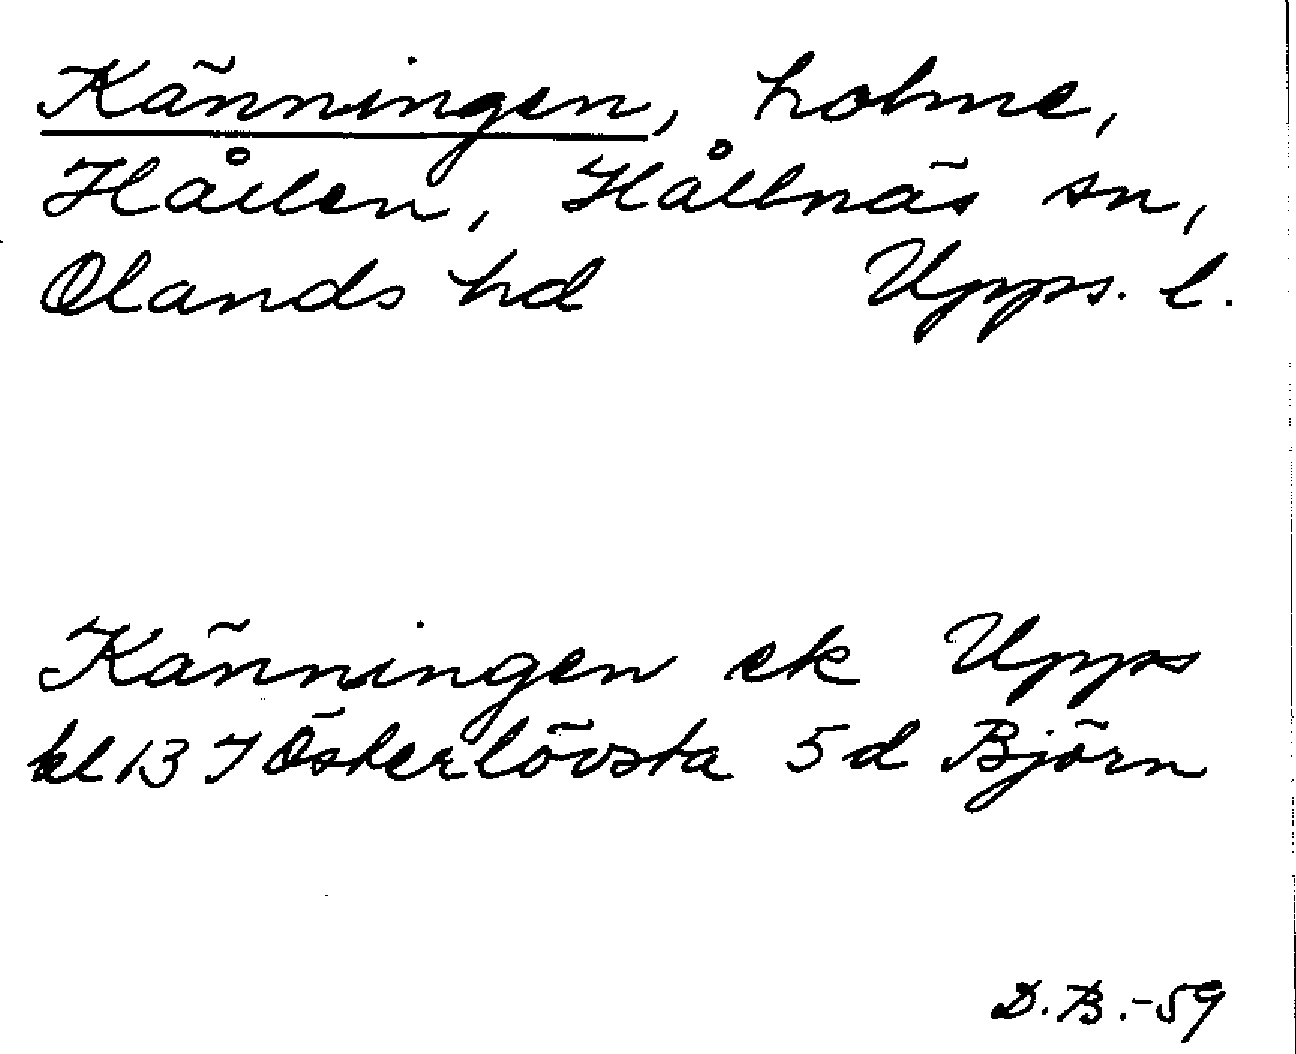 Känningen, holme,
Hållen, Hållnäs sn,
Olands hd Upps. l.
Känningen ek Upps
bl 13 I Österlövsta 5d Björn
D.B.-59